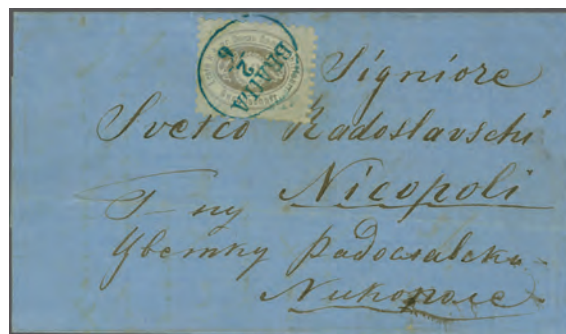 BRAILA
2/6
Signiore
Svetco Radoslavschi
Nicopoli
Г-ну
Цветку Радославски
Никополе